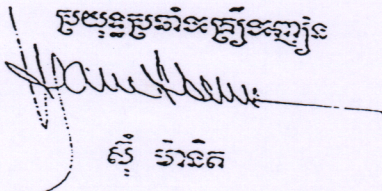 ប្រយុទ្ធប្រឆាំងគ្រឿងញៀន
ស៊ុំ ម៉ានិត